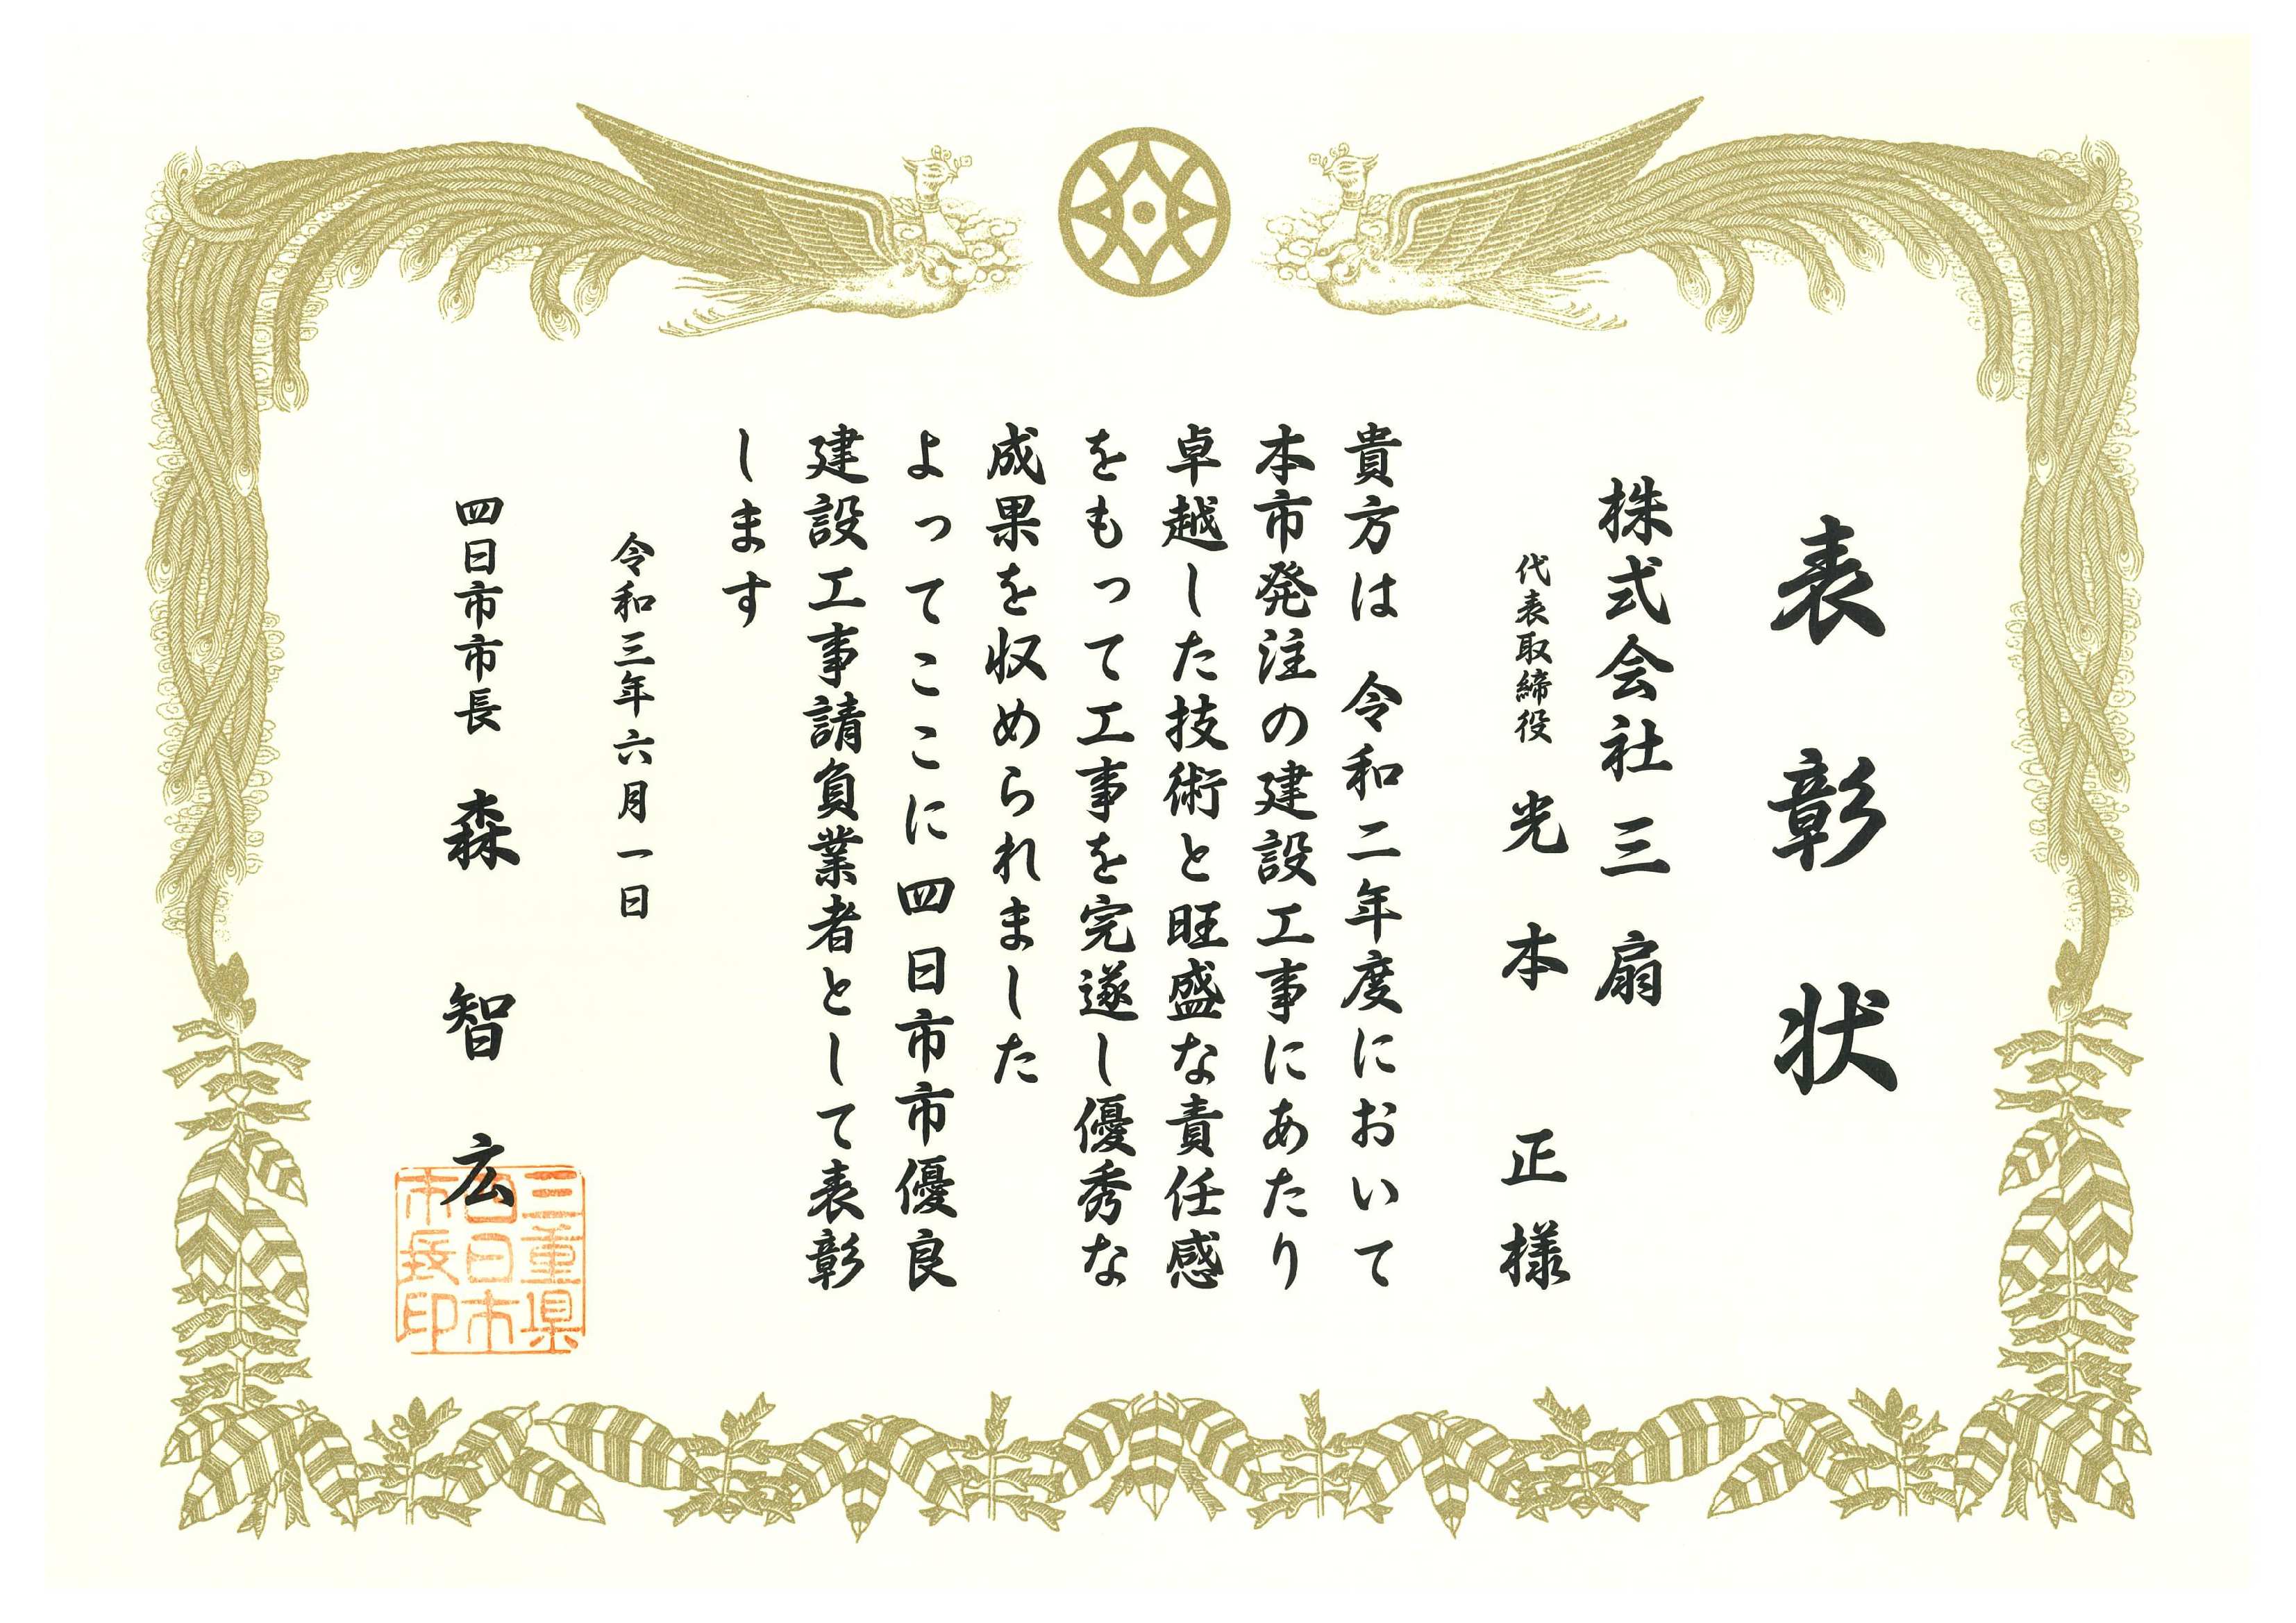 表彰状
株式会社三扇
代表取締役 光本 正様
貴方は 令和二年度において
本市発注の建設工事にあたり
卓越した技術と旺盛な責任感
をもって工事を完遂し優秀な
成果を収められました
よってここに四日市市優良
建設工事請負業者として表彰
します
令和三年六月一日
四日市市長 森 智広
三重県
四日市
市長印